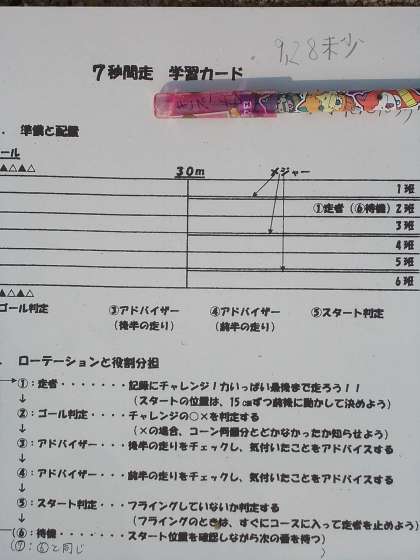 7秒間走 学習カード
. 準備と配置
ール
▲△▲△
30m
メジャー
1班
①走者(⑥待機)2班
3班
4班
5班
6班
▲△▲△
ゴール判定 ③アドバイザー ④アドバイザー ⑤スタート判定
(後半の走り) (前半の走り)
. ローテーションと役割分担
①:走者・・・・・・・記録にチャレンジ!力いっぱい最後まで走ろう!!
↓ (スタートの位置は、15㎝ずつ前後に動かして決めよう)
②:ゴール判定・・・・チャレンジの○×を判定する
↓ (×の場合、コーン何個分とどかなかったか知らせよう)
③:アドバイザー・・・後半の走りをチェックし、気付いたことをアドバイスする
↓
④:アドバイザー・・・前半の走りをチェックし、気付いたことをアドバイスする
↓
⑤:スタート判定・・・フライングしていないか判定する
↓ (フライングのときは、すぐにコースに入って走者を止めよう)
⑥:待機・・・・・・・スタート位置を確認しながら次の番を待つ)
(⑦:⑥と同じ